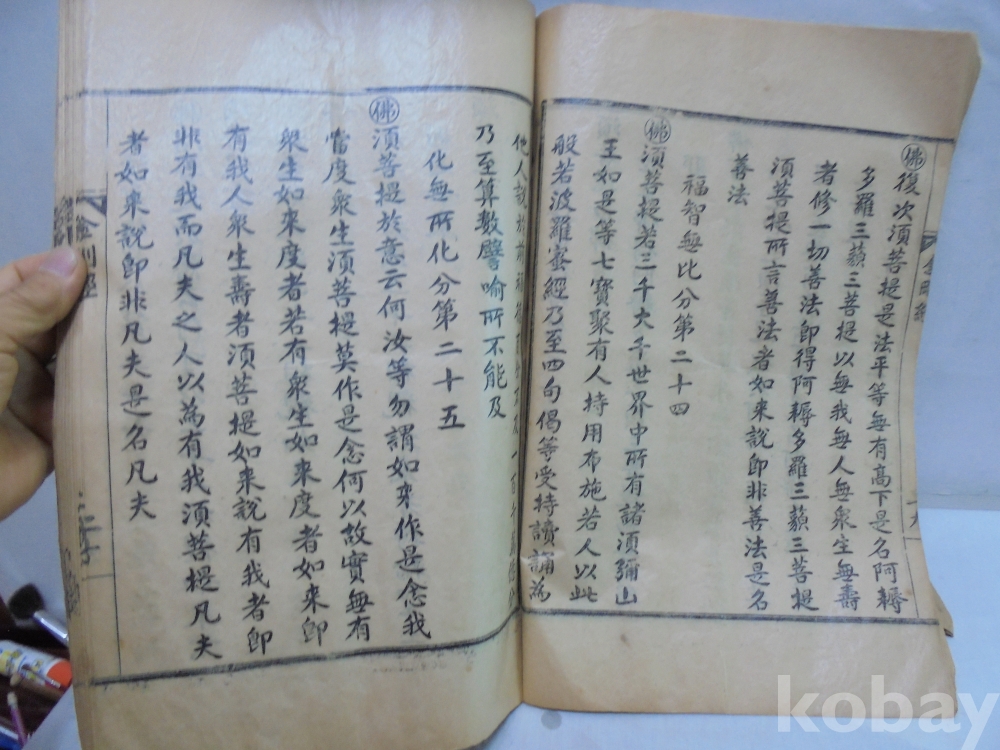 佛復次須菩提是法平等無有高下是名阿耨
多羅三藐三菩提以無我無人無衆生無壽
者修一切善法即得阿耨多羅三藐三菩提
須菩提所言善法者如来說即非善法是名
善法
福智無比分第二十四
佛須菩提若三千大千世界中所有諸須彌山
王如是等七寶聚有人持用布施若人以此
般若波羅蜜經乃至四句偈等受持讀誦爲
他人說於前福德百分不及一百千萬億分
乃至算數譬喻所不能及
化無所化分第二十五
佛須菩提於意云何汝等勿謂如來作是念我
當度衆生須菩提莫作是念何以故實無有
衆生如来度者若有衆生如来度者如来即
有我人衆生壽者須菩提如来說有我者即
非有我而凡夫之人以爲有我須菩提凡夫
者如来說即非凡夫是名凡夫
金剛經
kobay